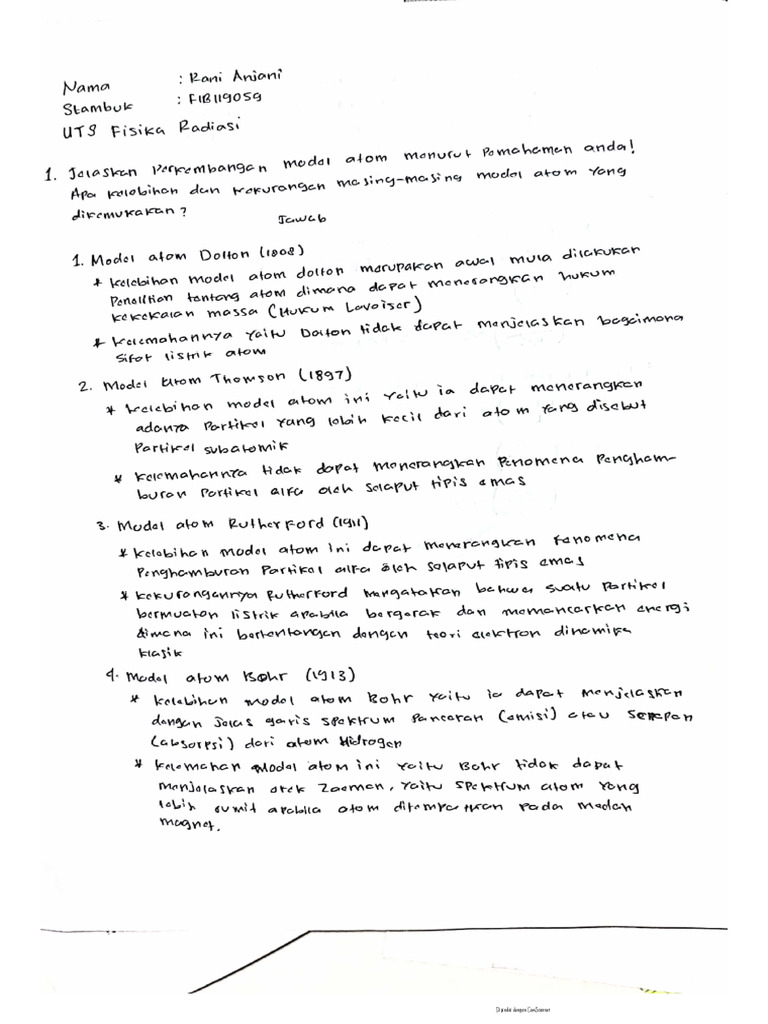 Nama : Rani Anjani
Stambuk : F1B119059
UTS Fisika Radiasi
1. Jelaskan Perkembangan model atom menurut Pemahaman anda!
Apa kelebihan dan kekurangan masing-masing model atom yang
dikemukakan?
Jawab
1. Model atom Dalton (1808)
* Kelebihan model atom dalton merupakan awal mula dilakukan
Penelitian tentang atom dimana dapat menerangkan hukum
kekekalan massa (Hukum Lavoiser)
* Kelemahannya yaitu Dalton tidak dapat menjelaskan bagaimana
Sifat listrik atom
2. Model atom Thomson (1897)
* Kelebihan model atom ini yaitu ia dapat menerangkan
adanya Partikel yang lebih kecil dari atom yang disebut
Partikel subatomik
* Kelemahannya tidak dapat menerangkan Penomena Pengham-
buran Partikel alfa oleh selaput tipis emas
3. Model atom Rutherford (1911)
* Kelebihan model atom ini dapat menerangkan fenomena
Penghamburan Partikel alfa oleh selaput tipis emas
* Kekurangannya Rutherford mengatakan bahwa suatu Partikel
bermuatan listrik apabila bergerak dan memancarkan energi
dimana ini bertentangen dengan teori elektron dinamika
klasik
4. Model atom Bohr (1913)
* Kelebihan model atom Bohr yaitu ia dapat menjelaskan
dengan jelas garis spektrum Pancaran (emisi) atau Serapan
(absorpsi) dari atom Hidrogen
* Kelemahan Model atom ini yaitu Bohr tidak dapat
menjelaskan efek Zaeman, yaitu spektrum atom yang
lebih rumit apabila atom ditempatkan pada medan
magnet.
Dipindai dengan CamScanner